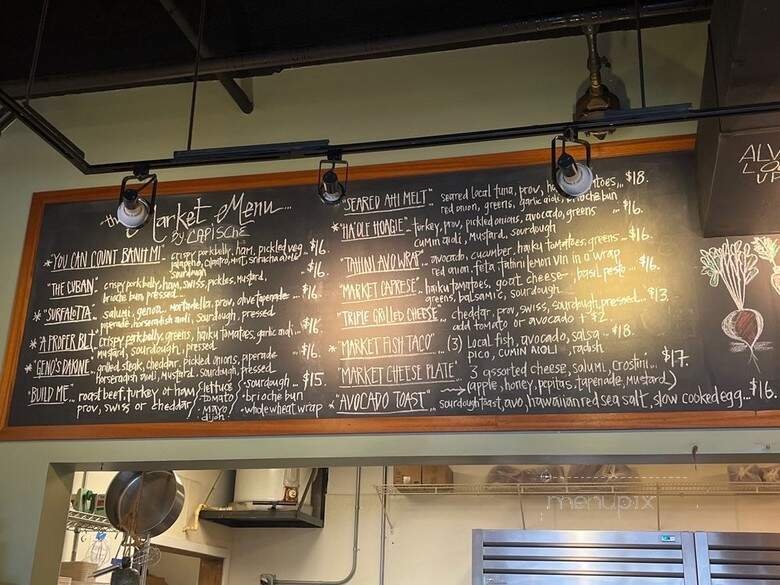 the Market Menu...
By CAPISCHE
*"YOU CAN COUNT BANH MI" crispy pork belly, ham, pickled veg $16.
jalapeño, cilantro, mint, sriracha aioli
sourdough
"THE CUBAN" crispy pork belly, ham, swiss, pickles, mustard, $16.
brioche bun, pressed
*"SURFALOTTA" salumi, genoa, mortadella, prov, olive tapenade $16.
piperade, horseradish aioli, sourdough, pressed
*"A PROPER BLT" crispy pork belly, greens, haiku tomatoes, garlic aioli $16.
mustard, sourdough, pressed
*"GENO'S DAKINE" grilled steak, cheddar, pickled onions, piperade $16.
horseradish aioli, mustard, sourdough, pressed
"BUILD ME" roast beef, turkey or ham / lettuce · sourdough $15.
prov, swiss or cheddar / tomato · brioche bun
mayo · whole wheat wrap
dijon
"SEARED AHI MELT" seared local tuna, prov, tomatoes... $18.
red onion, greens, garlic aioli, brioche bun
*"HA'OLE HOAGIE" turkey, prov, pickled onions, avocado, greens $16.
cumin aioli, mustard, sourdough
"TAHINI AVO WRAP" avocado, cucumber, haiku tomatoes, greens $16.
red onion, feta, tahini lemon vin in a wrap
"MARKET CAPRESE" haiku tomatoes, goat cheese, basil pesto $16.
greens, balsamic, sourdough
"TRIPLE GRILLED CHEESE" cheddar, prov, swiss, sourdough, pressed... $13.
add tomato or avocado + $2.
"MARKET FISH TACO" (3) Local fish, avocado, salsa $18.
pico, CUMIN AIOLI, radish
"MARKET CHEESE PLATE" 3 assorted cheese, salumi, crostini... $17.
(apple, honey, pepitas, tapenade, mustard)
*"AVOCADO TOAST" sourdough toast, avo, hawaiian red sea salt, slow cooked egg... $16.
menupix